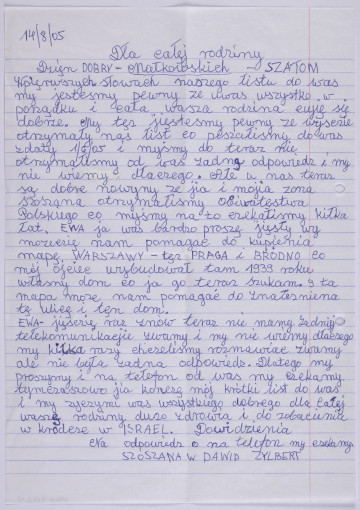 14/8/05
Dla całej rodziny
Dzień DOBRY - Małkowskich - SZALOM
W pierwszych słowach naszego listu do was
my jesteśmy pewny że uwas wszystko w
porządku i cała wasza rodzina cuje się
dobrze. my też jiestesmy pewny że wyście
otrzymały nas list co posełalismy do was
zdaty 1/6/05 i myśmy do teraz nie
otrzymaliśmy od was żadną odpowiedz i my
nie wiemy dlaczego. Ale u nas teraz
są dobre nowyny że jia i mojia żona
szoszana otrzymaliśmy Obiwatestwa
Polskiego co myśmy na to czekaliśmy kilka
lat. EWA ja was bardzo proszę jysty wy
możecie nam pomagać do kupienia
mapę WARSZAWY - też PRAGA i BRÓDNO co
mój Ojciec wybudował tam 1933 roku
własny dom co ja go teraz szukam. I ta
mapa może nam pomagać do znaleźniena
tę ulicę i ten dom.
EWA - jyszczę raz znów teraz nie mamy żadnji
telekomunikacjie zwamy i my nie wiemy dlaczego
my kilka razy chczeliśmy rozmawiać zwamy
ale nie była żadna odpowiedz. Dlatego my
proszymy i na telefon od was my czekamy
tymczasowo jia kończę mój krótki list do was
i my życzymi was wszystkiego dobrego dla całej
waszej rodziny, dużo zdrowia i do zobaczenia
w krodcse w ISRAEL. Dowidzienia
Na odpowiedz o na telefon my czekamy.
SZOSZANA w DAWID ZYLBERT